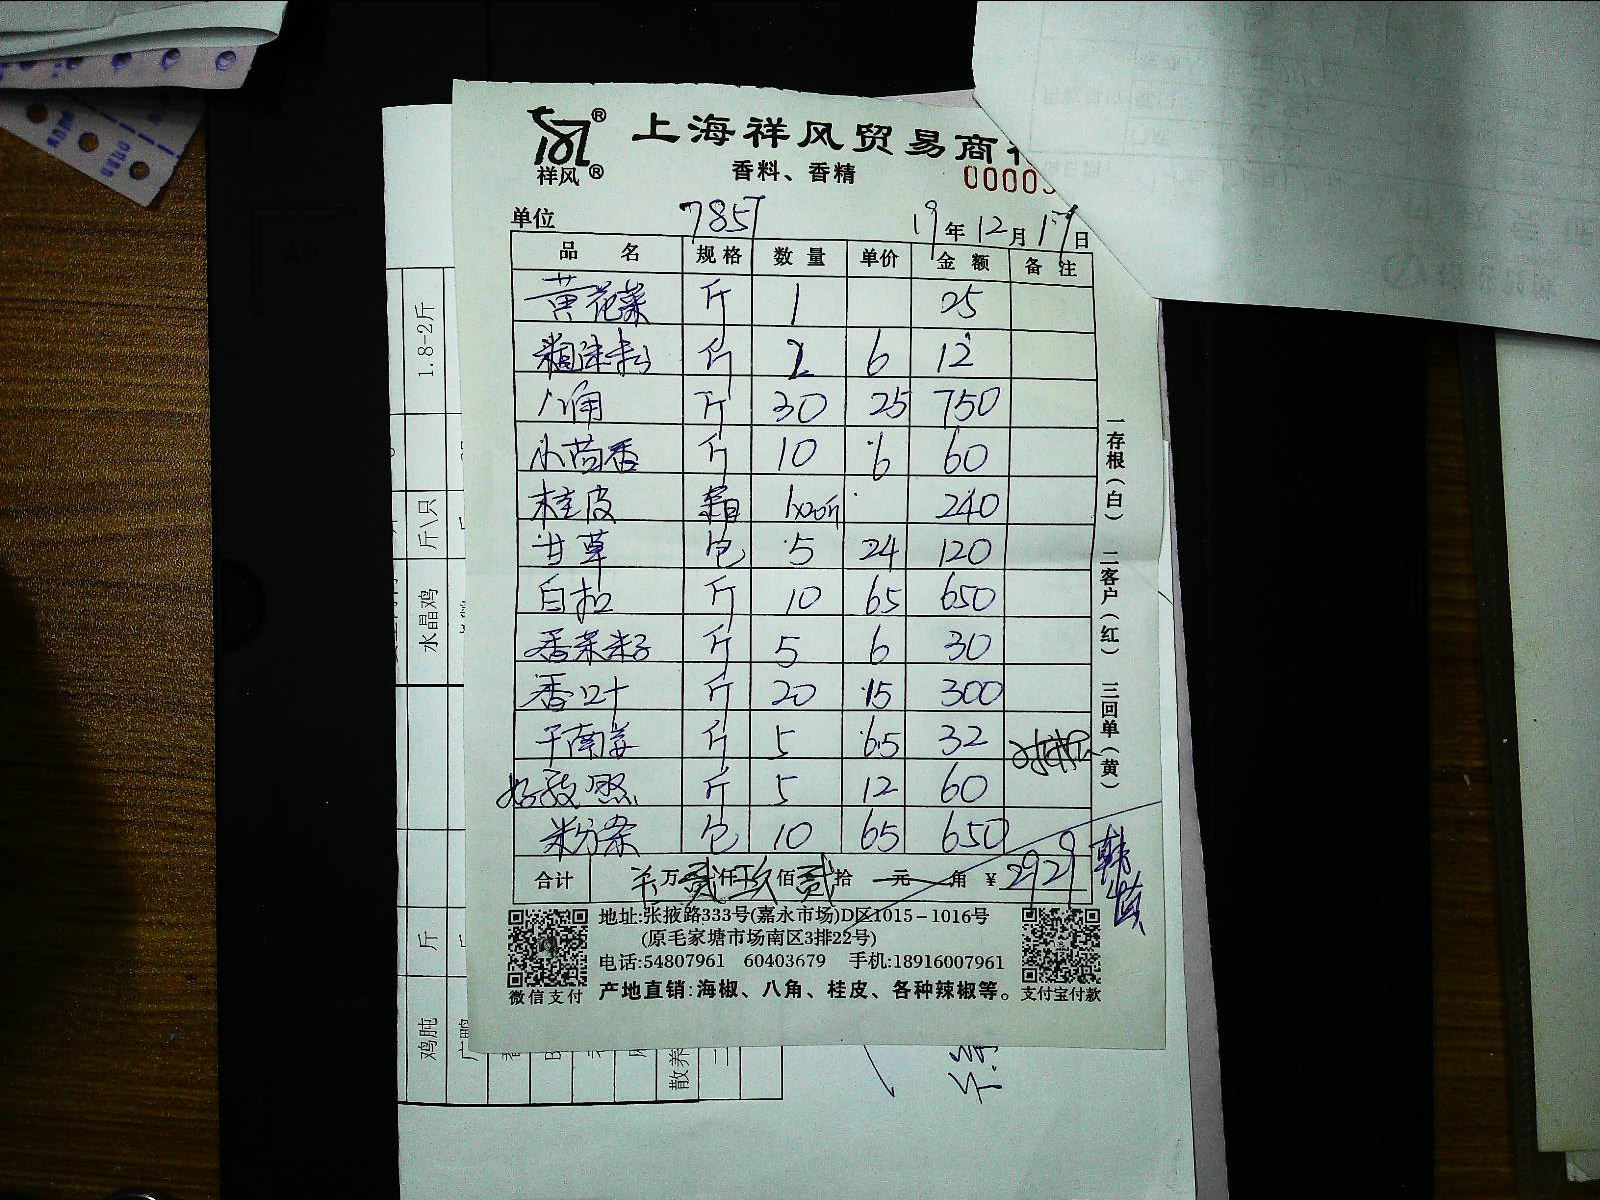 祥风
上海祥风贸易商
香料、香精
单位 7857 19年12月17日
品名 规格 数量 单价 金额 备注
黄花菜 斤 1 25
斤 2 6 12
八角 斤 30 25 750
小茴香 斤 10 6 60
桂皮 箱 1x20斤 240
甘草 包 5 24 120
白扣 斤 10 65 650
香菜籽 斤 5 6 30
香叶 斤 20 15 300
干南姜 斤 5 6.5 32
斤 5 12 60
粉条 包 10 65 650
合计 万贰仟玖佰贰拾 元 角 ¥ 2929
一存根(白) 二客户(红) 三回单(黄)
地址:张掖路333号(嘉永市场)D区1015-1016号
(原毛家塘市场南区3排22号)
电话:54807961 60403679 手机:18916007961
微信支付 产地直销:海椒、八角、桂皮、各种辣椒等。 支付宝付款
1.8-2斤
斤\只
水晶鸡
斤
鸡肫
散养